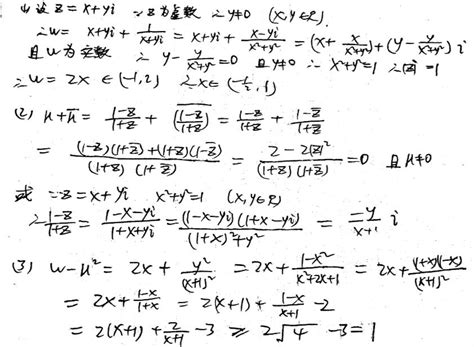 (1) 设 z = x+yi ∵z为虚数 ∴ y≠0 (x,y∈R)
∴w= x+yi + \frac{1}{x+yi} = x+yi + \frac{x-yi}{x²+y²} = (x+\frac{x}{x²+y²})+(y-\frac{y}{x²+y²}) i
且w为实数 ∴ y-\frac{y}{x²+y²}=0 且y≠0 ∴ x²+y²=1 ∴|z|=1
∴w = 2x ∈(-1,2) ∴x∈(-\frac{1}{2},1)
(2) μ+\overline{μ} = \frac{1-z}{1+z} + \overline{(\frac{1-z}{1+z})} = \frac{1-z}{1+z} + \frac{1-\overline{z}}{1+\overline{z}}
= \frac{(1-z)(1+\overline{z})+(1+z)(1-\overline{z})}{(1+z)(1+\overline{z})} = \frac{2-2|z|²}{(1+z)(1+\overline{z})} =0 且μ≠0
或 ∵z=x+yi x²+y²=1 (x,y∈R)
∴\frac{1-z}{1+z} = \frac{1-x-yi}{1+x+yi} = \frac{(1-x-yi)(1+x-yi)}{(1+x)²+y²} = \frac{-y}{x+1} i
(3) w-μ² = 2x + \frac{y²}{(x+1)²} = 2x+\frac{1-x²}{x²+2x+1} = 2x+\frac{(1+x)(1-x)}{(x+1)²}
= 2x+\frac{1-x}{1+x} = 2(x+1)+\frac{1-x}{x+1}-2
= 2(x+1)+\frac{2}{x+1}-3 ≥ 2\sqrt{4} -3=1